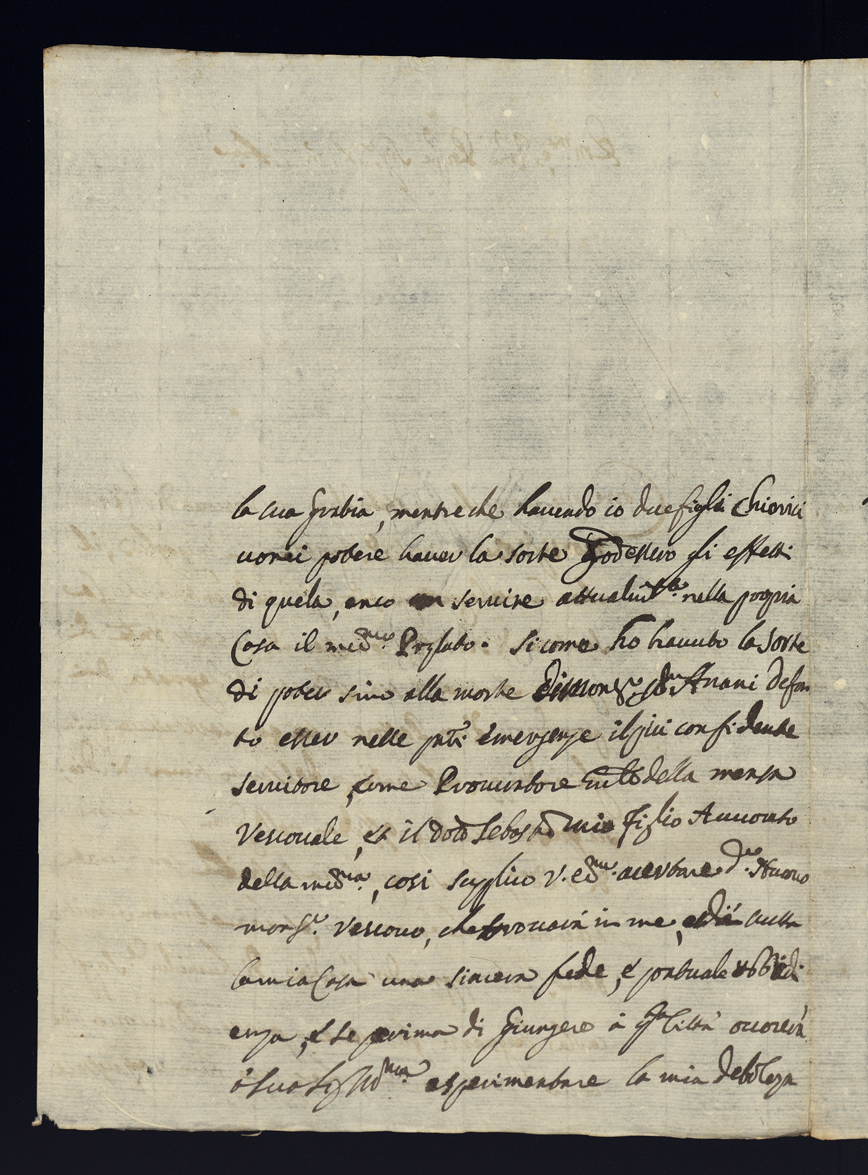 la sua gratia, mentre che havendo io due figli Chierici
vorei potere haver la sorte godessero gli effetti
di quela, anco servire attualmte nella propria
Casa il medmo Preffato. Si come ho havuto la sorte
di poter sino alla morte di monsr Anani defon
to esser nelle pnti emergenze il piu confidente
servitore, come Procuratore della mensa
Vescovale, et il dotr Sebastno mio figlio Avvocato
della medma, cosi supplico V. Edma acertare do Nuovo
monsr Vescovo, che trovarà in me, et in tutta
la mia Casa una sincera fede, e pontuale obbidi
enza, e se prima di giungere à qta Città occorerà
à sua Sigria Illma esperimentare la mia debolezza